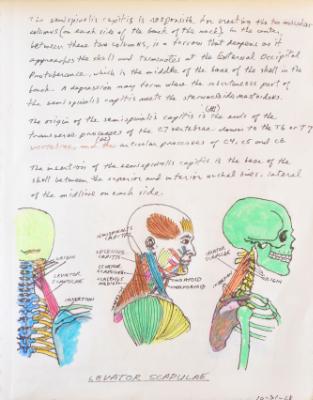 The semispinalis capitis is responsible for creating the two muscular
columns (on each side of the back of the neck). In the center,
between these two columns, is a furrow that deepens as it
approaches the skull and terminates at the External Occipital
Protuberance, which is the middle of the base of the skull in the
back. A depression may form where the subcutaneous part of
the semispinalis capitis meets the sternocleidomastoideus.
The origin of the semispinalis capitis is the ends of the
transverse processes of the C7 vertebrae down to the T6 or T7
vertebrae, and the articular processes of C4, C5 and C6
The insertion of the semispinalis capitis is the base of the
skull between the superior and inferior nuchal lines, lateral
of the midline on each side.
SEMISPINALIS
CAPITIS
SPLENIUS
CAPITIS
LEVATOR
SCAPULAE
SCALENUS
MEDIUS
OMOHYOID
LEVATOR
SCAPULAE
ORIGIN
INSERTION
ORIGIN
LEVATOR
SCAPULAE
INSERTION
LEVATOR SCAPULAE